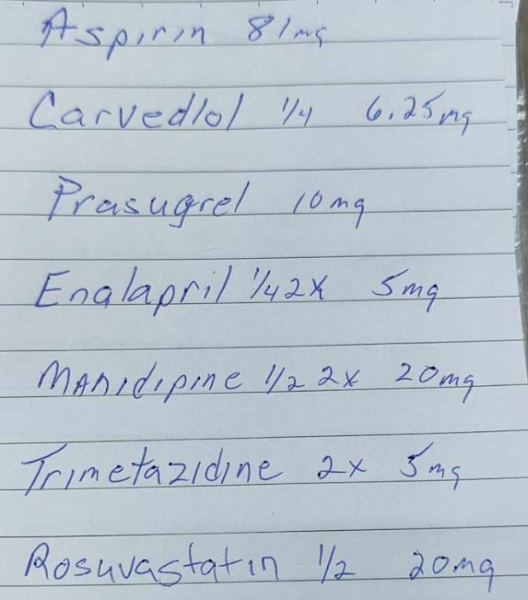 Aspirin 81mg
Carvedlol 1/4 6.25mg
Prasugrel 10mg
Enalapril 1/4 2x 5mg
Manidipine 1/2 2x 20mg
Trimetazidine 2x 5mg
Rosuvastatin 1/2 20mg